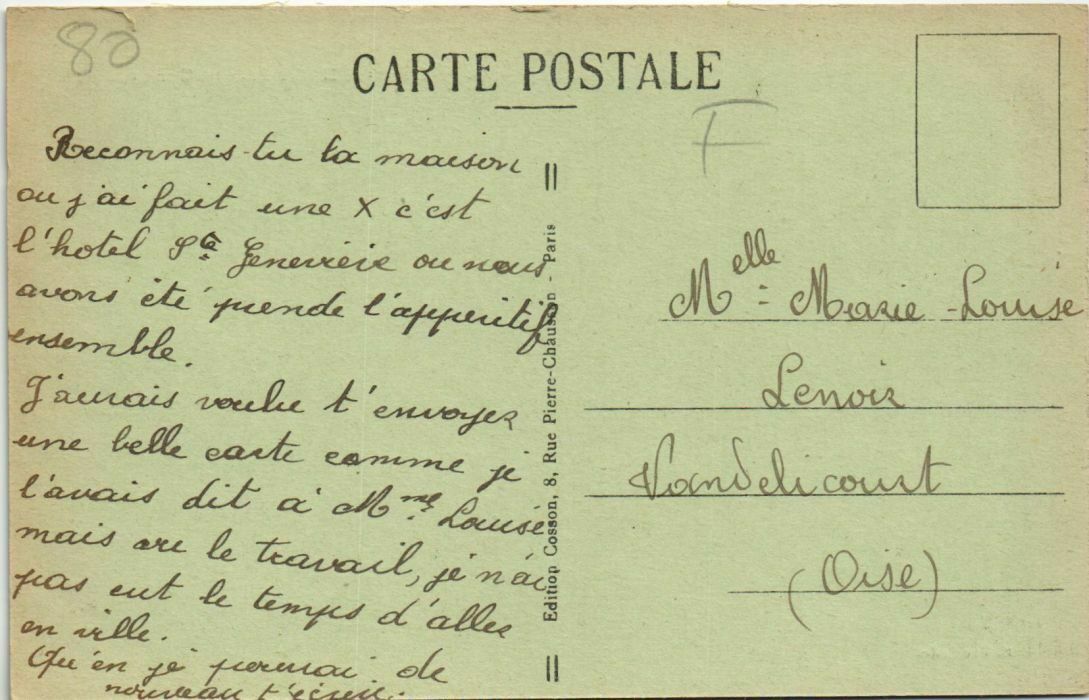 80
CARTE POSTALE
F
Reconnais-tu la maison
ou j'ai fait une X c'est
l'hotel Ste Genevieve ou nous
avons été prende l'apperitif
ensemble.
J'aurais voulu t'envoyer
une belle carte comme je
l'avais dit à Mme Louise
mais vu le travail, je n'ai
pas eut le temps d'aller
en ville.
Qu'en je pourrai de
nouveau t'écrire.
Edition Cosson, 8, Rue Pierre-Chausson - Paris
Melle Marie-Louise
Lenoir
Vandelicourt
(Oise)